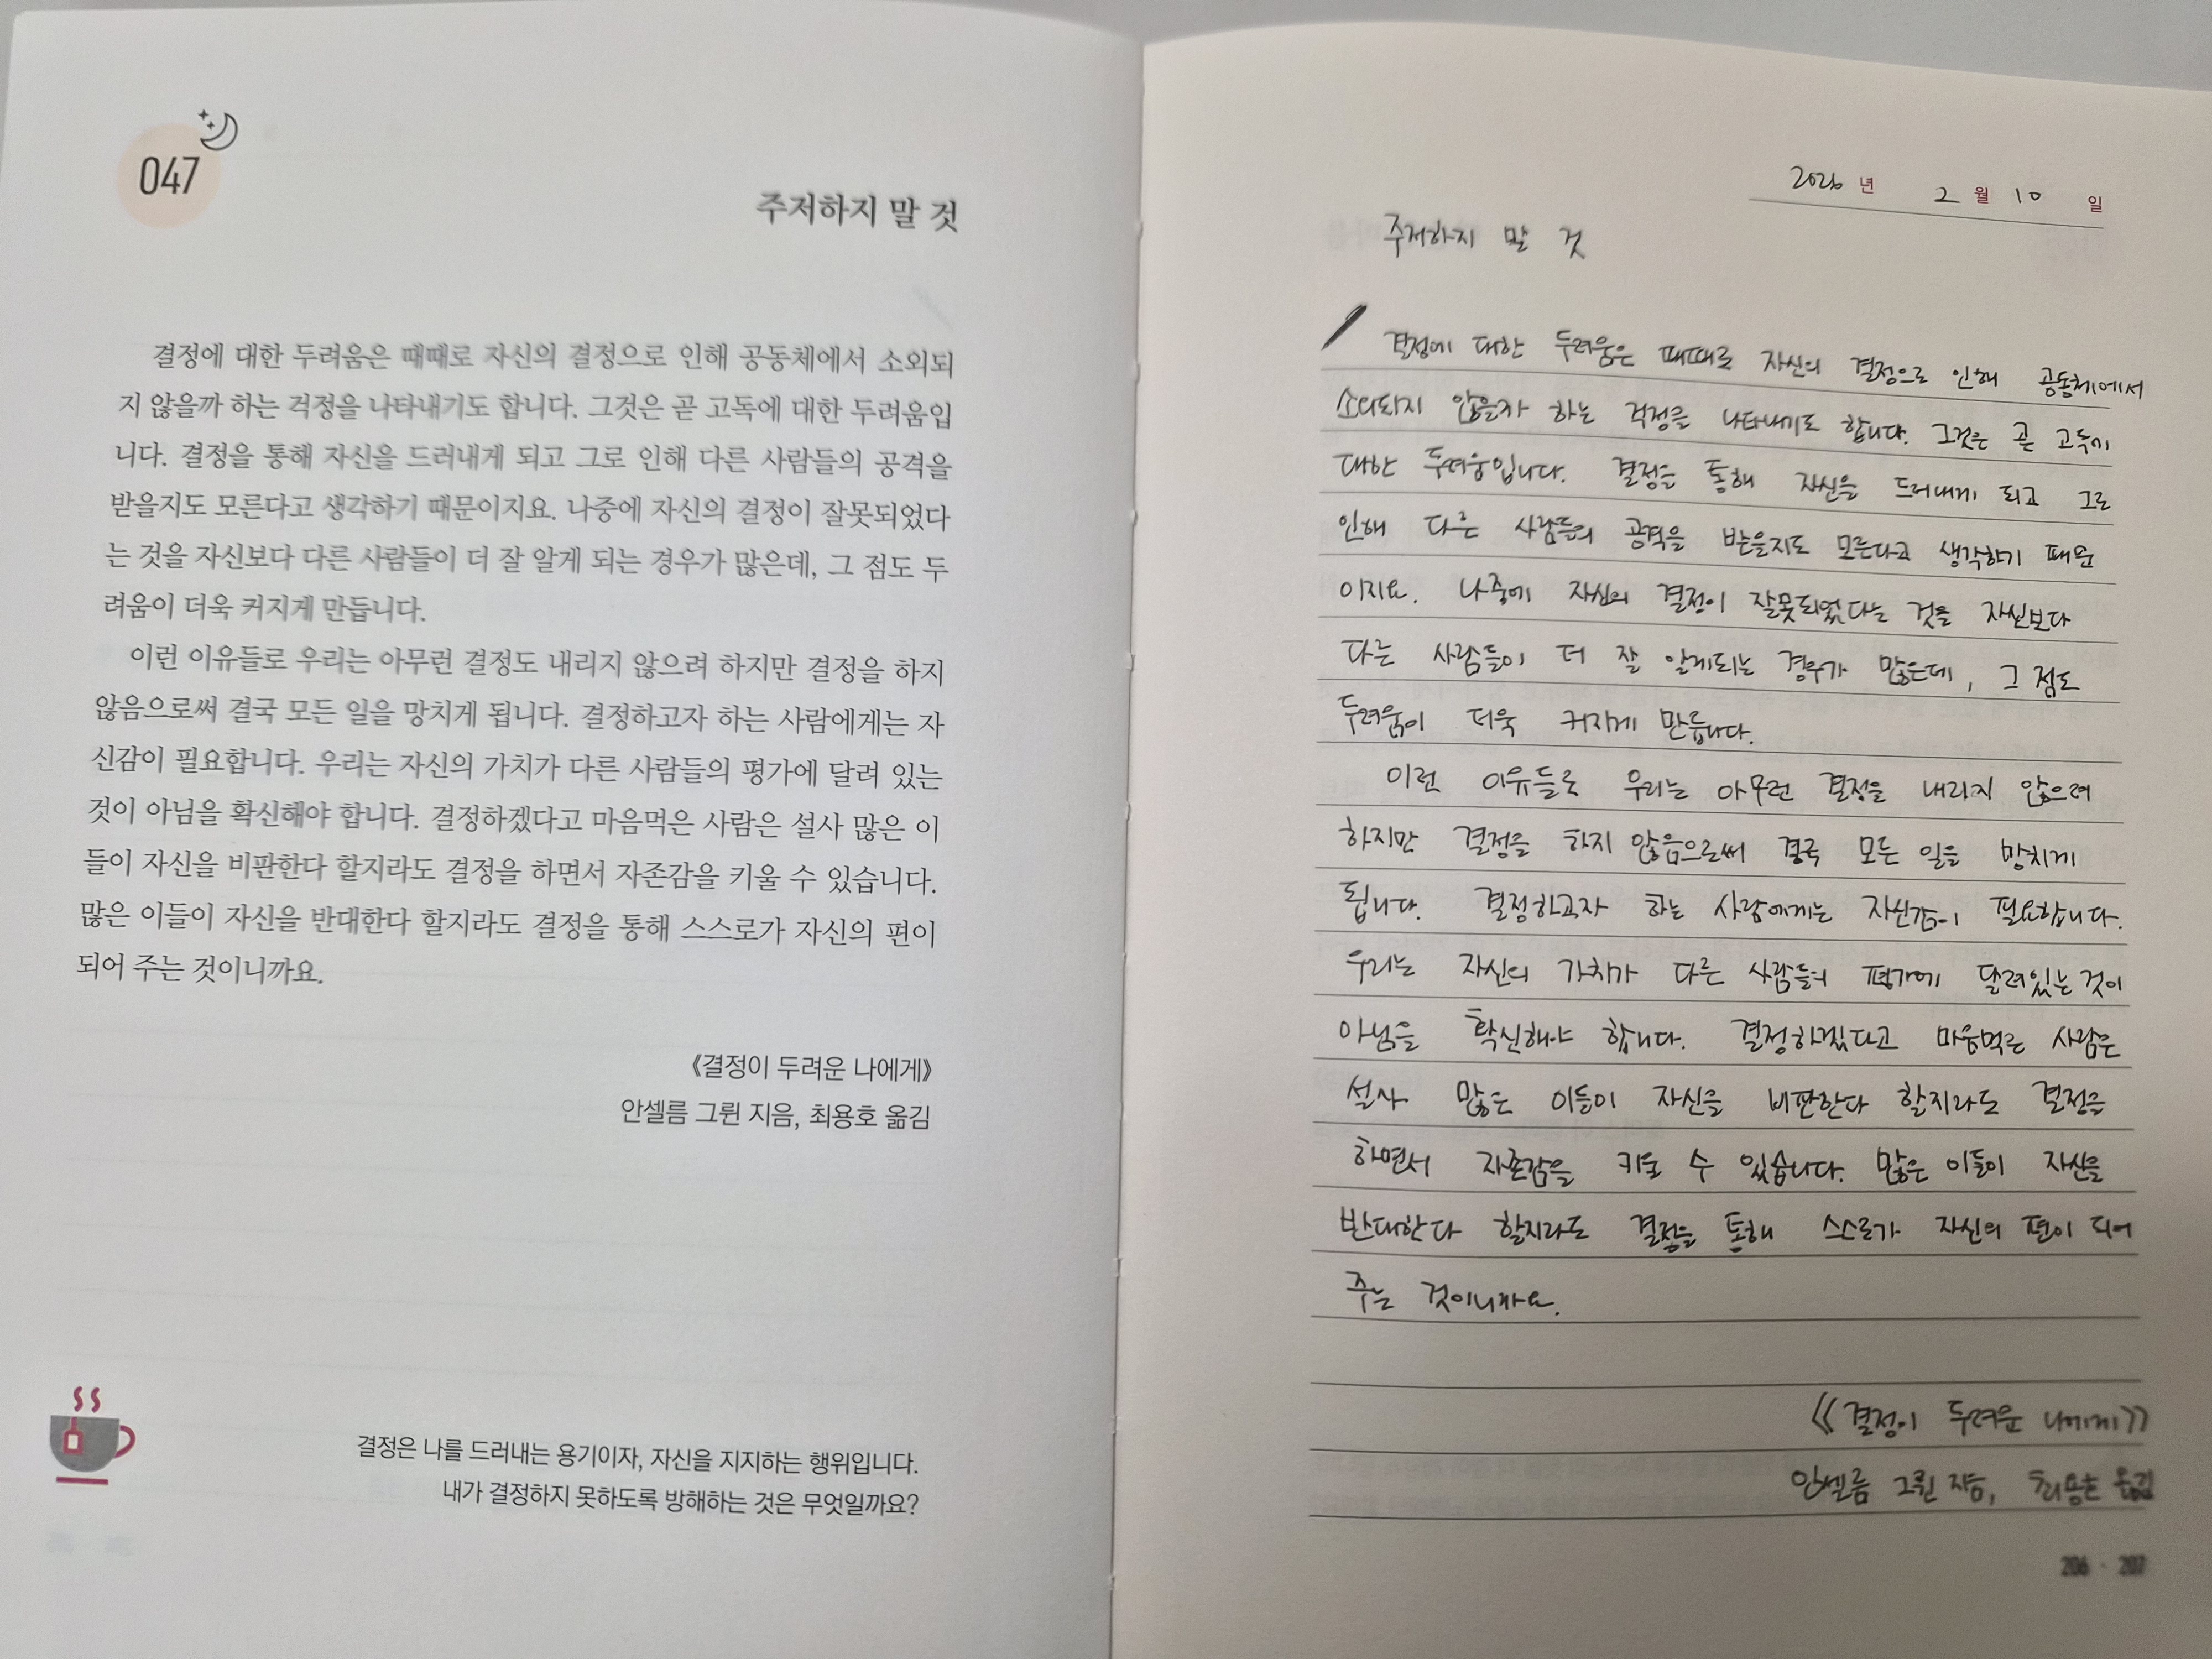 047
주저하지 말 것
결정에 대한 두려움은 때때로 자신의 결정으로 인해 공동체에서 소외되
지 않을까 하는 걱정을 나타내기도 합니다. 그것은 곧 고독에 대한 두려움입
니다. 결정을 통해 자신을 드러내게 되고 그로 인해 다른 사람들의 공격을
받을지도 모른다고 생각하기 때문이지요. 나중에 자신의 결정이 잘못되었다
는 것을 자신보다 다른 사람들이 더 잘 알게 되는 경우가 많은데, 그 점도 두
려움이 더욱 커지게 만듭니다.
이런 이유들로 우리는 아무런 결정도 내리지 않으려 하지만 결정을 하지
않음으로써 결국 모든 일을 망치게 됩니다. 결정하고자 하는 사람에게는 자
신감이 필요합니다. 우리는 자신의 가치가 다른 사람들의 평가에 달려 있는
것이 아님을 확신해야 합니다. 결정하겠다고 마음먹은 사람은 설사 많은 이
들이 자신을 비판한다 할지라도 결정을 하면서 자존감을 키울 수 있습니다.
많은 이들이 자신을 반대한다 할지라도 결정을 통해 스스로가 자신의 편이
되어 주는 것이니까요.
《결정이 두려운 나에게》
안셀름 그륀 지음, 최용호 옮김
결정은 나를 드러내는 용기이자, 자신을 지지하는 행위입니다.
내가 결정하지 못하도록 방해하는 것은 무엇일까요?
2026 년 2 월 10 일
주저하지 말 것
결정에 대한 두려움은 때때로 자신의 결정으로 인해 공동체에서
소외되지 않을까 하는 걱정을 나타내기도 합니다. 그것은 곧
대한 두려움입니다. 결정을 통해 자신을 드러내게 되고 그로
인해 다른 사람들의 공격을 받을지도 모른다고 생각하기 때문
이지요. 나중에 자신의 결정이 잘못되었다는 것을 자신보다
다른 사람들이 더 잘 알게되는 경우가 많은데, 그 점도
두려움이 더욱 커지게 만듭니다.
이런 이유들로 우리는 아무런 결정을 내리지 않으려
하지만 결정을 하지 않음으로써 결국 모든 일을 망치게
됩니다. 결정하고자 하는 사람에게는 자신감이 필요합니다.
우리는 자신의 가치가 다른 사람들의 평가에 달려있는 것이
아님을 확신해야 합니다. 결정하겠다고 마음먹은 사람은
설사 많은 이들이 자신을 비판한다 할지라도 결정을
하면서 자존감을 키울 수 있습니다. 많은 이들이 자신을
반대한다 할지라도 결정을 통해 스스로가 자신의 편이 되어
주는 것이니까요.
《결정이 두려운 나에게》
안셀름 그륀 지음, 최용호 옮김
206 · 207